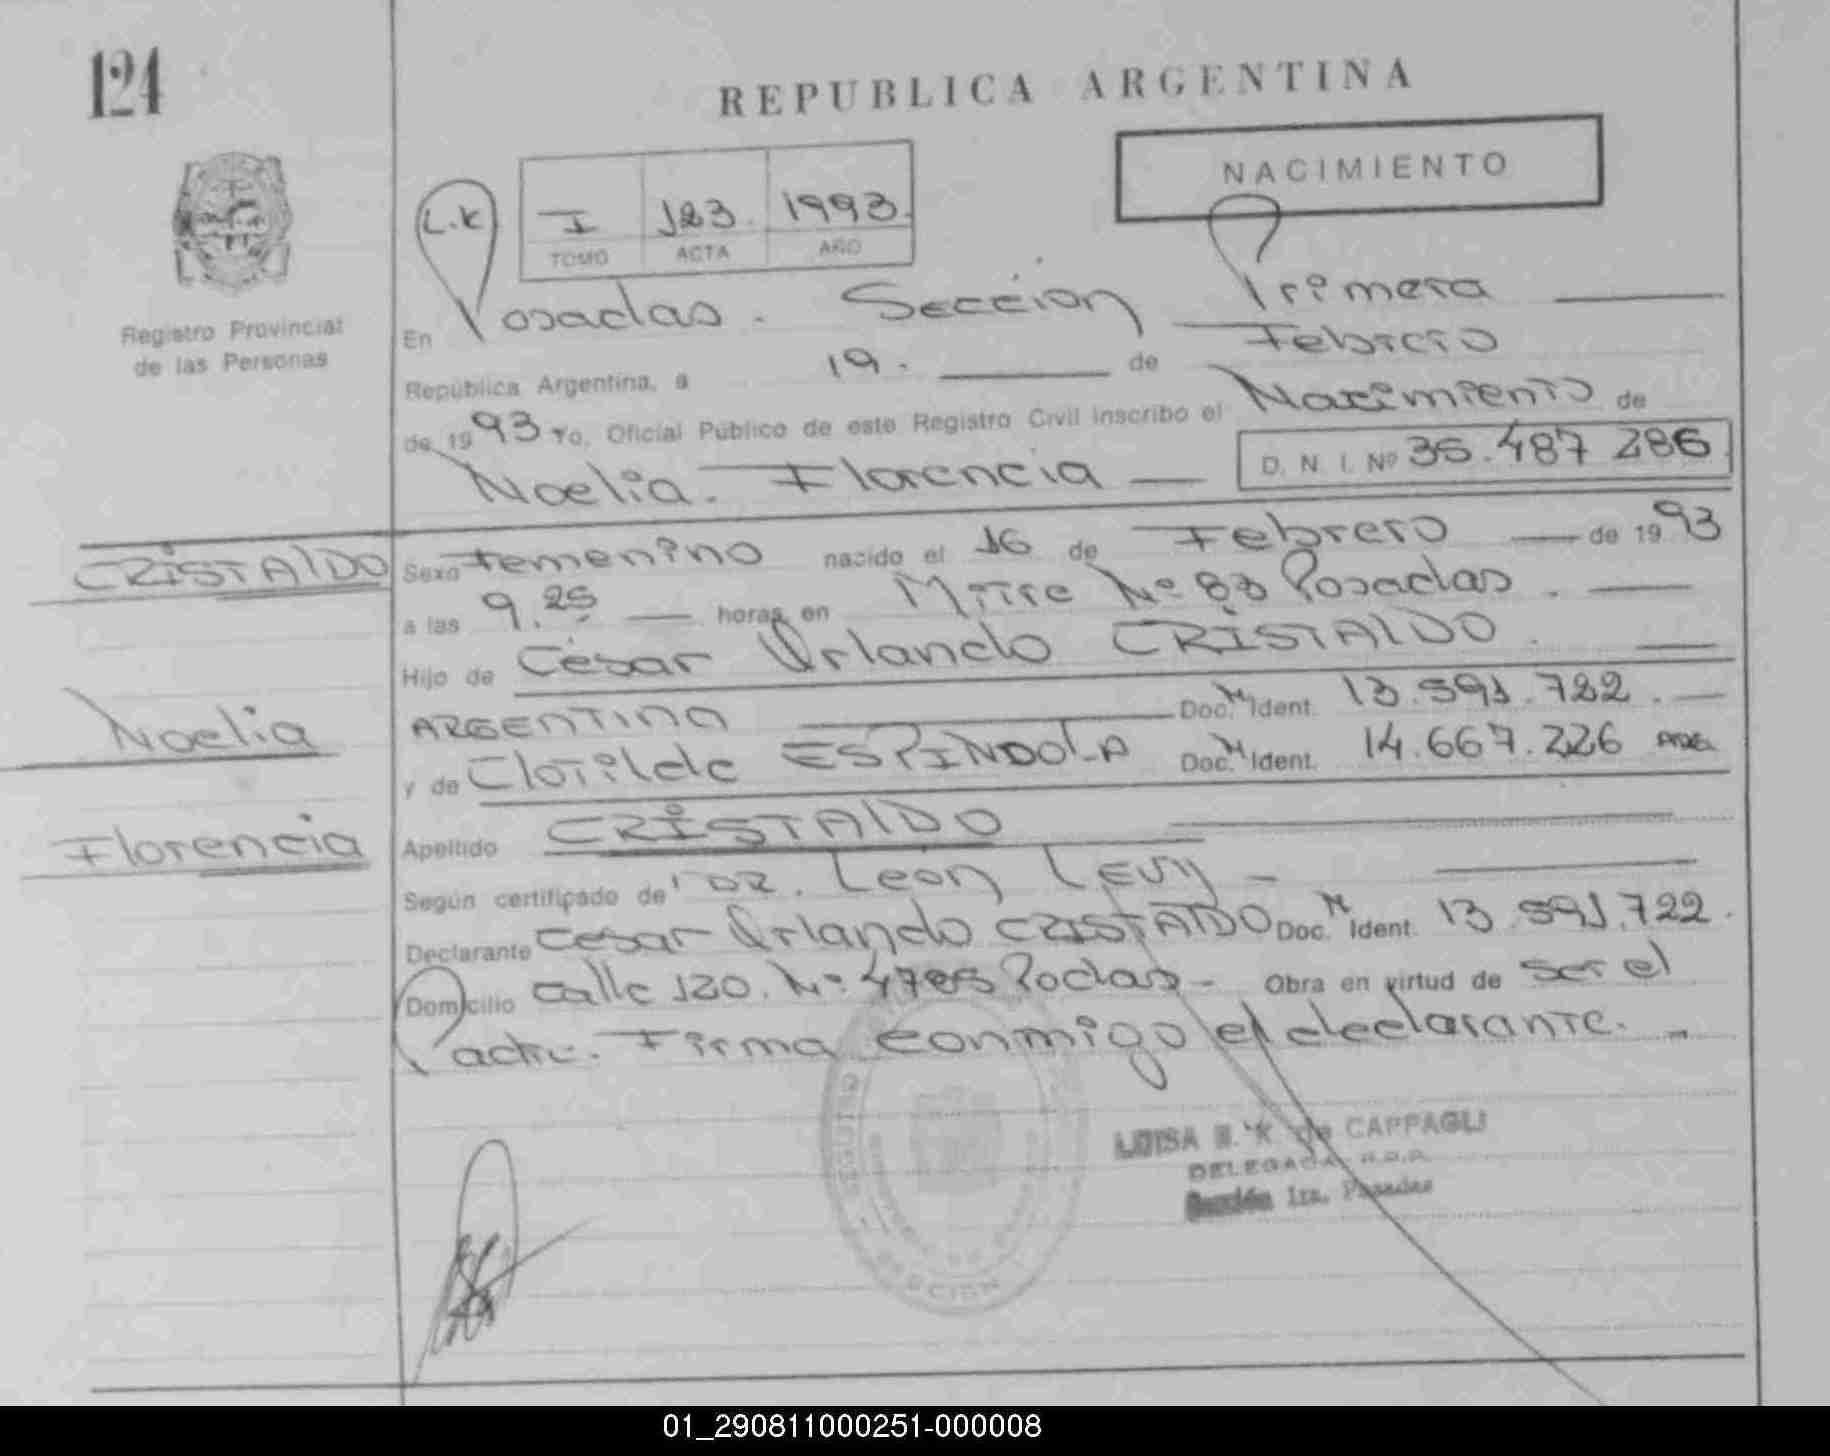 124
REPUBLICA ARGENTINA
NACIMIENTO
L.K
I 123 1993
TOMO ACTA AÑO
Registro Provincial
de las Personas
En Posadas. Sección Primera
República Argentina, a 19. de Febrero
de 1993 Yo, Oficial Público de este Registro Civil inscribo el Nacimiento de
Noelia. Florencia D. N. I. Nº 35.487 286
CRISTALDO
Sexo Femenino nacido el 16 de Febrero de 1993
a las 9.25 horas, en Mitre Nº 83 Posadas.
Hijo de César Orlando CRISTALDO.
Noelia
ARGENTINA Doc. N Ident. 13.591.722.
y de Clotilde ESPINDOLA Doc. N Ident. 14.667.226 ARG.
Florencia
Apellido CRISTALDO
Según certificado de DR. León Levy -
Declarante Cesar Orlando CRISTALDO Doc. N Ident. 13.591.722.
Domicilio calle 120. Nº 4785 Podas - Obra en virtud de ser el
Padre. Firma conmigo el declarante. -
LUISA K de CAPPAGLI
DELEGADA R.P.P.
Sección 1ra. Posadas
SECCION
01_290811000251-000008